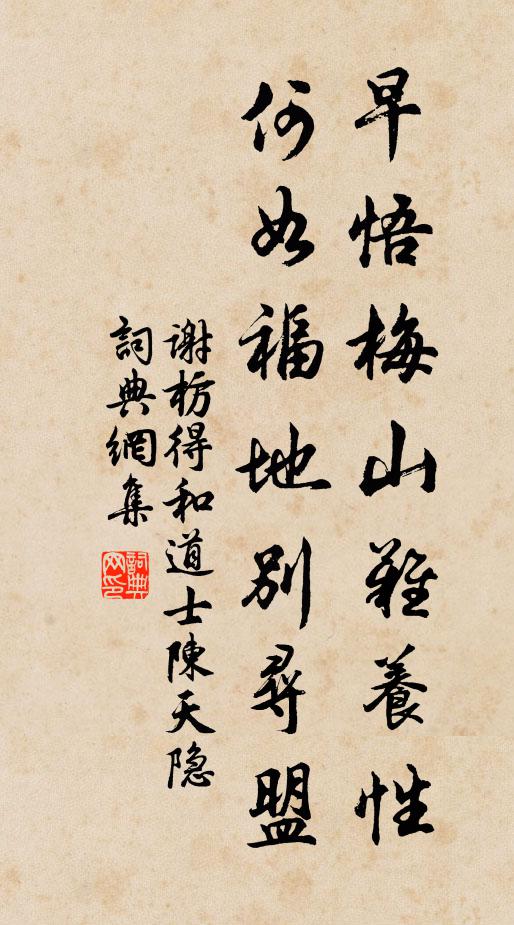 早悟梅山難養性
何如福地別尋盟
谢枋得和道士陳天隐
詞典網集
詞典网印